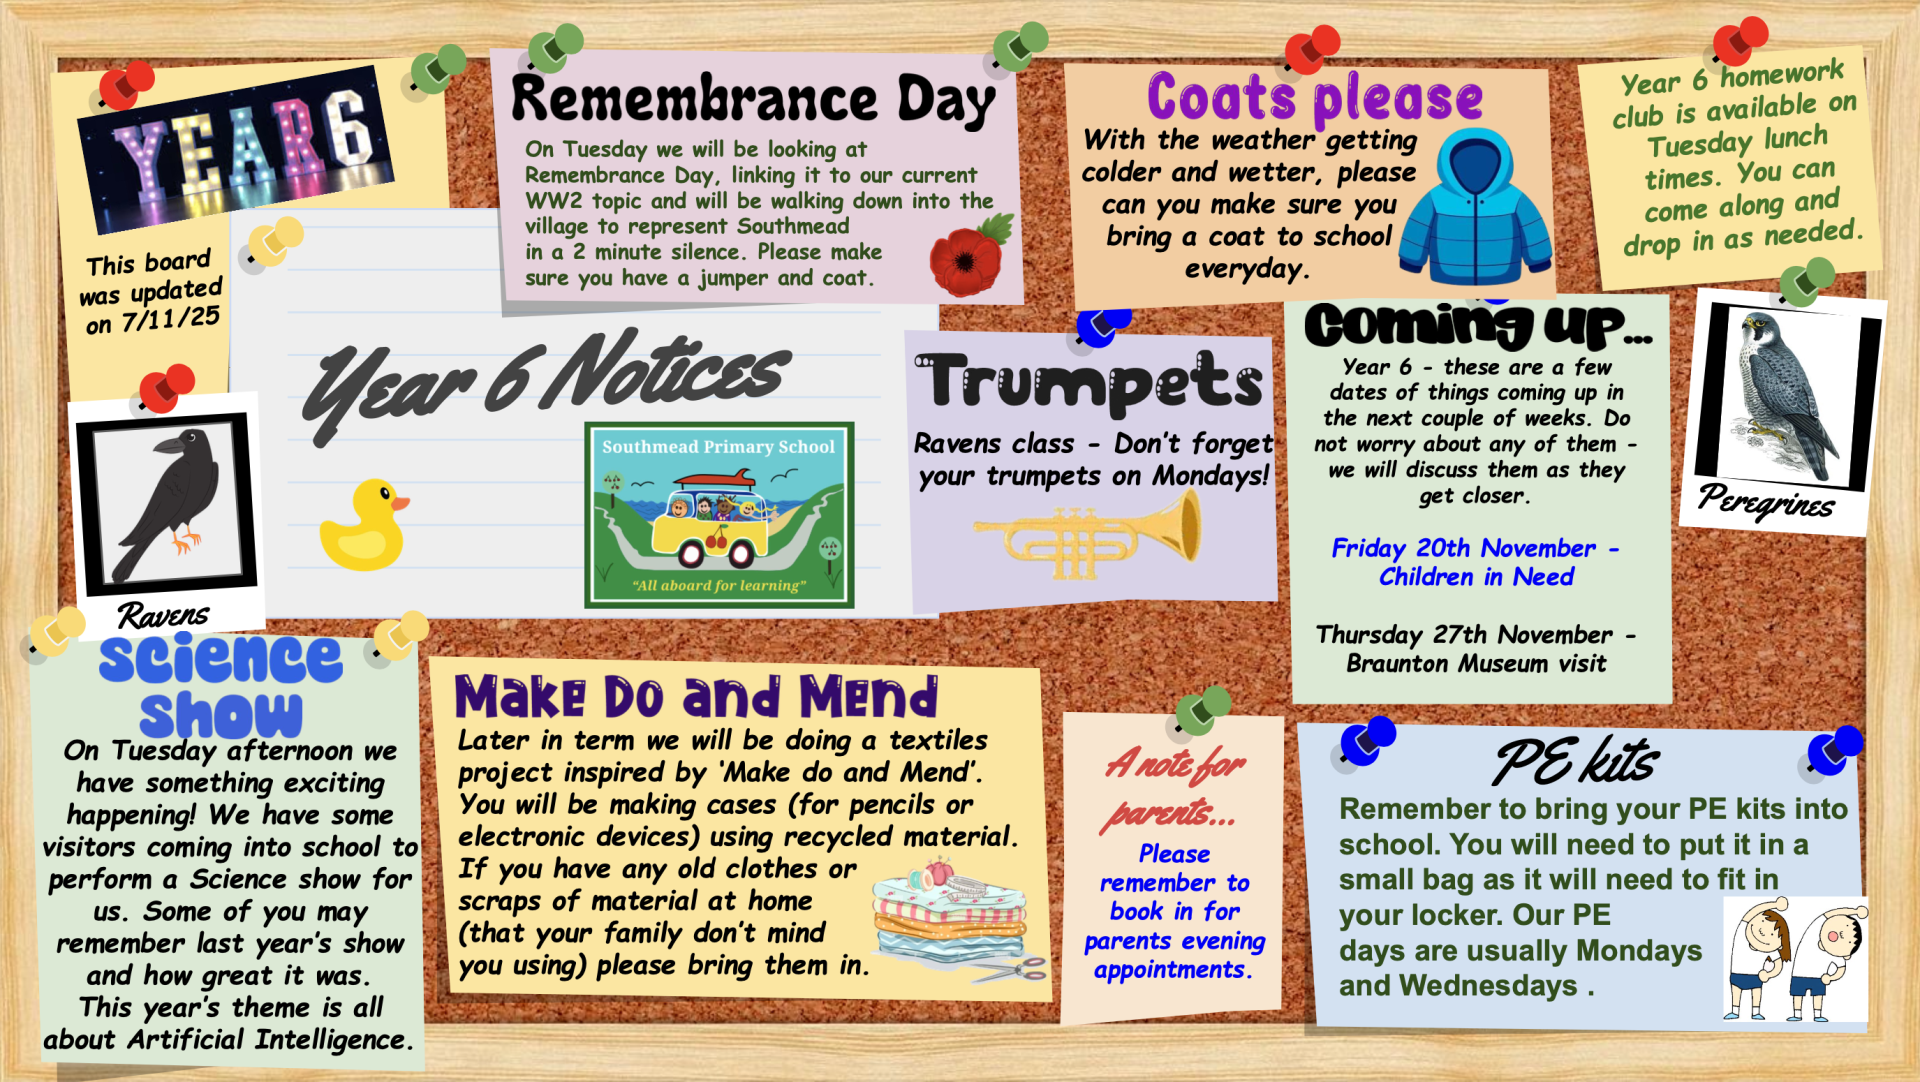 YEAR6
This board
was updated
on 7/11/25
Remembrance Day
On Tuesday we will be looking at
Remembrance Day, linking it to our current
WW2 topic and will be walking down into the
village to represent Southmead
in a 2 minute silence. Please make
sure you have a jumper and coat.
Coats please
With the weather getting
colder and wetter, please
can you make sure you
bring a coat to school
everyday.
Year 6 homework
club is available on
Tuesday lunch
times. You can
come along and
drop in as needed.
Year 6 Notices
Southmead Primary School
"All aboard for learning"
Ravens
Trumpets
Ravens class - Don't forget
your trumpets on Mondays!
Coming up...
Year 6 - these are a few
dates of things coming up in
the next couple of weeks. Do
not worry about any of them -
we will discuss them as they
get closer.
Friday 20th November -
Children in Need
Thursday 27th November -
Braunton Museum visit
Peregrines
Science
show
On Tuesday afternoon we
have something exciting
happening! We have some
visitors coming into school to
perform a Science show for
us. Some of you may
remember last year's show
and how great it was.
This year's theme is all
about Artificial Intelligence.
Make Do and Mend
Later in term we will be doing a textiles
project inspired by 'Make do and Mend'.
You will be making cases (for pencils or
electronic devices) using recycled material.
If you have any old clothes or
scraps of material at home
(that your family don't mind
you using) please bring them in.
A note for
parents...
Please
remember to
book in for
parents evening
appointments.
PE kits
Remember to bring your PE kits into
school. You will need to put it in a
small bag as it will need to fit in
your locker. Our PE
days are usually Mondays
and Wednesdays .